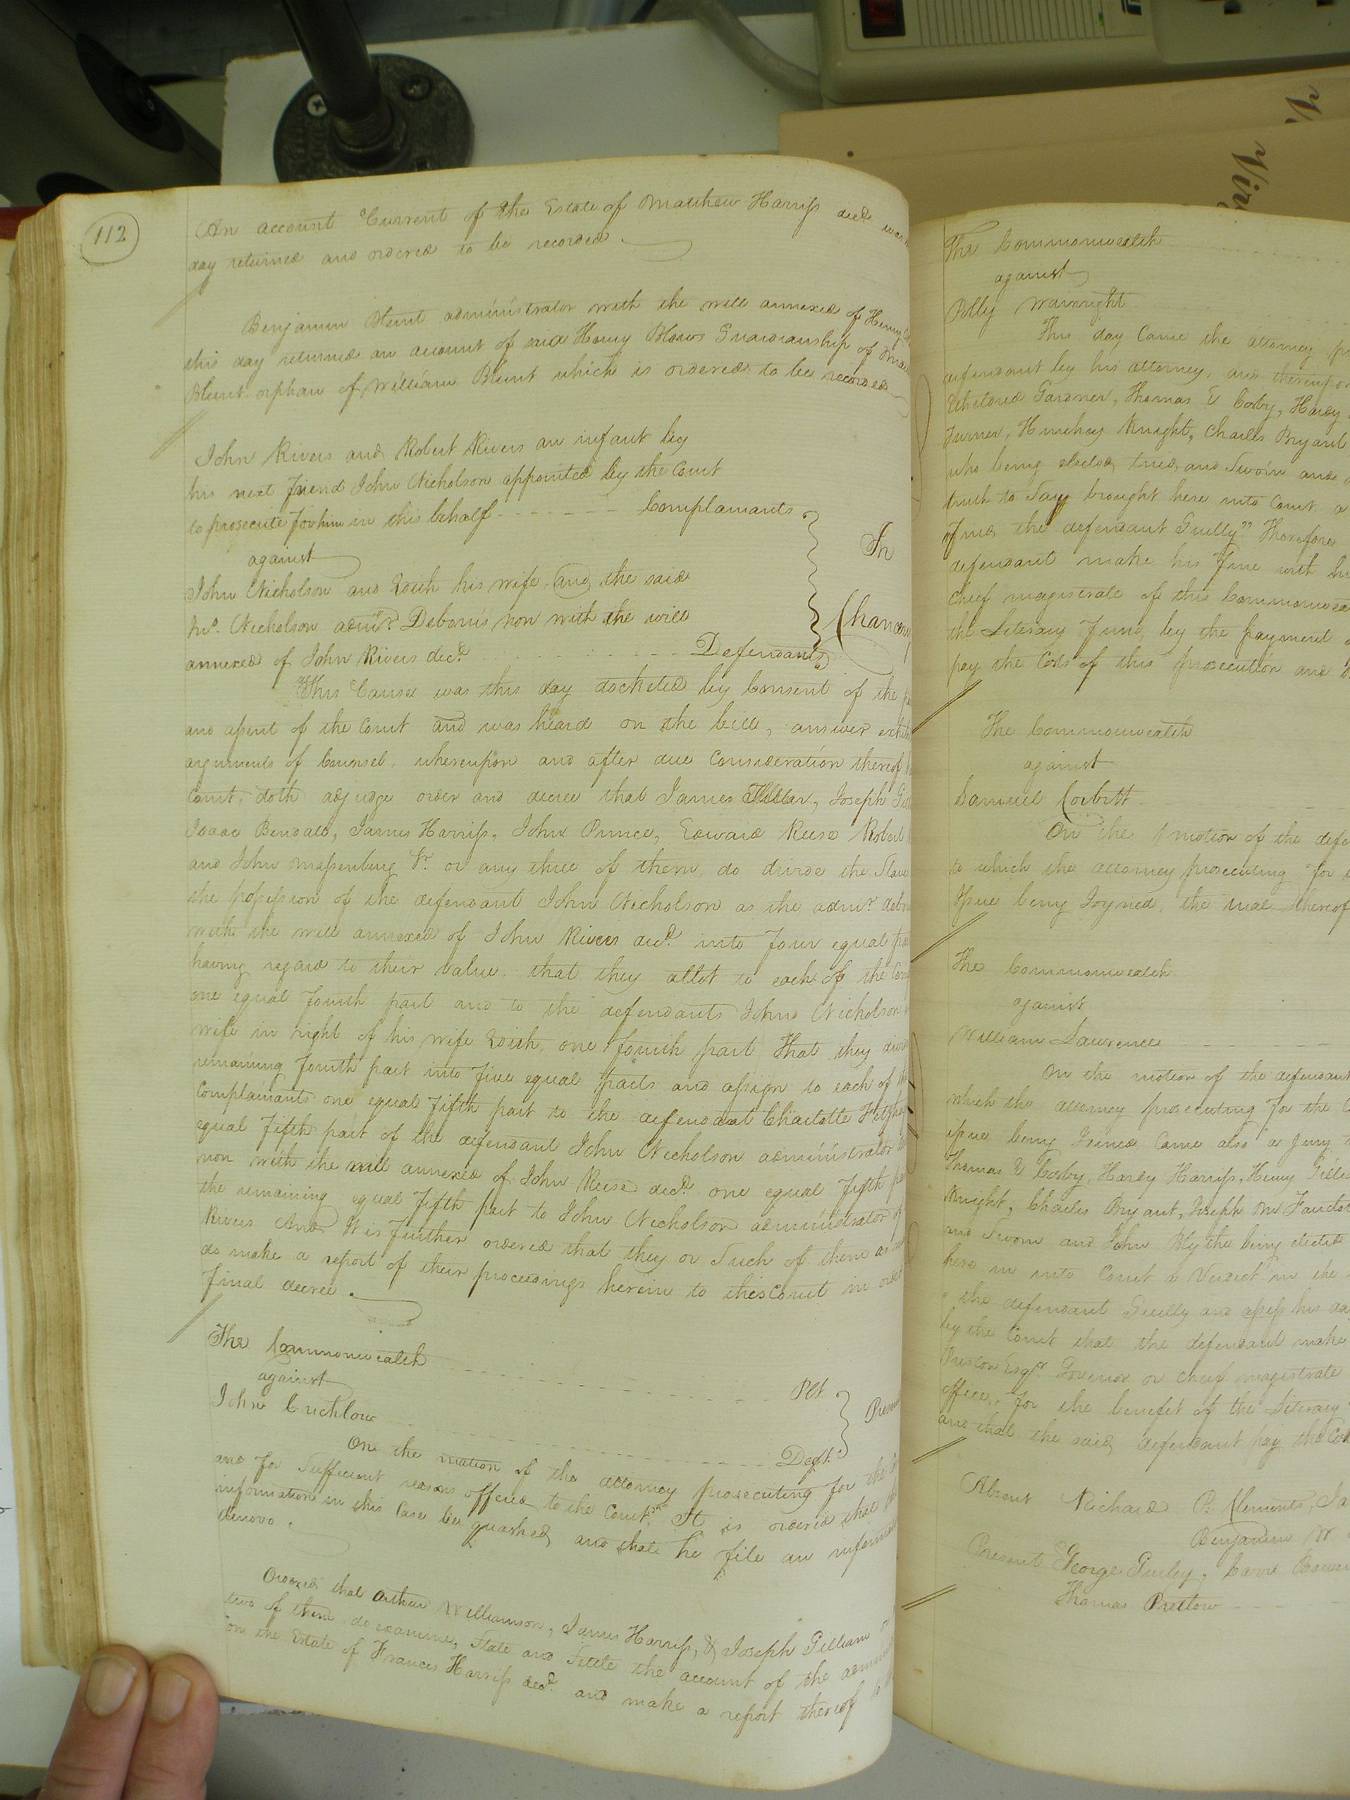 112
An account Current of the Estate of Matthew Harriss decd was
day returned and ordered to be recorded
Benjamin Blunt administrator with the will annexed of Henry
this day returned an account of said Henry Blows Guardianship of
Blunt orphan of William Blunt which is ordered to be recorded
John Rivers and Robert Rivers an infant by
his next friend John Nicholson appointed by the Court
to prosecute for him in this behalf Complainants
against
John Nicholson and his wife and the said
Jno. Nicholson admr. Debonis non with the will
annexed of John Rivers decd. Defendants
In Chancery
This Cause was this day docketed by Consent of the
and assent of the Court and was heard on the bill, answer
arguments of Counsel, whereupon and after due Consideration thereof
Court doth adjudge order and decree that James Joseph
Isaac Bendall, James Harriss, John Prince, Edward Reese Robert
and John Massenburg Jr. or any three of them, do divide the Slaves
the possession of the defendant John Nicholson as the admr.
with the will annexed of John Rivers decd. into four equal
having regard to their value. that they allot to each of the
one equal fourth part and to the defendants John Nicholson
wife in right of his wife one fourth part That they
remaining fourth part into five equal parts and assign to each of
Complainants one equal fifth part to the defendant Charlotte
equal fifth part of the defendant John Nicholson administrator
non with the will annexed of John Reese decd. one equal fifth
the remaining equal fifth part to John Nicholson administrator of
Rivers And It is further ordered that they or such of them as
do make a report of their proceedings herein to this Court in order
final decree.
The Commonwealth Plt.
against
John Crichlow Deft.
On the motion of the attorney prosecuting for the
and for sufficient reasons offered to the Court. It is ordered that
information in this Case be quashed and that he file an
denovo.
Ordered that Arthur Williamson, James Harriss, & Joseph Gilliam or
two of them do examine, State and Settle the account of the
on the Estate of Frances Harriss decd. and make a report thereof
The Commonwealth
against
Polly Wainright
This day Came the attorney
defendant by his attorney, and thereupon
Gardner, Thomas E Cosby, Hardy
Turner, Knight, Charles Bryant
who being elected tried and Sworn and
truth to Say brought here into Court a
find the defendant Guilty" Therefore
defendant make his Fine with
Chief magistrate of this Commonwealth
the Literary Fund, by the payment
pay the Costs of this prosecution and
The Commonwealth
against
Samuel Corbitt
On the motion of the
to which the attorney prosecuting for
Issue being Joyned, the trial thereof
The Commonwealth
against
William Lawrence
On the motion of the defendant
which the attorney prosecuting for the
issue being Joined Came also a Jury
Thomas E Cosby, Hardy Harriss, Henry
Knight, Charles Bryant, Joseph
and Sworn and John Blythe being elected
here in into Court a Verdict in the
the defendant Guilty and assess his
by the Court that the defendant make
Preston Esqr. Governor or Chief magistrate
office, for the benefit of the Literary
and that the said defendant pay the Costs
Absent Richard P. Clements,
Benjamin W
Present George Gurley,
Thomas Pretlow